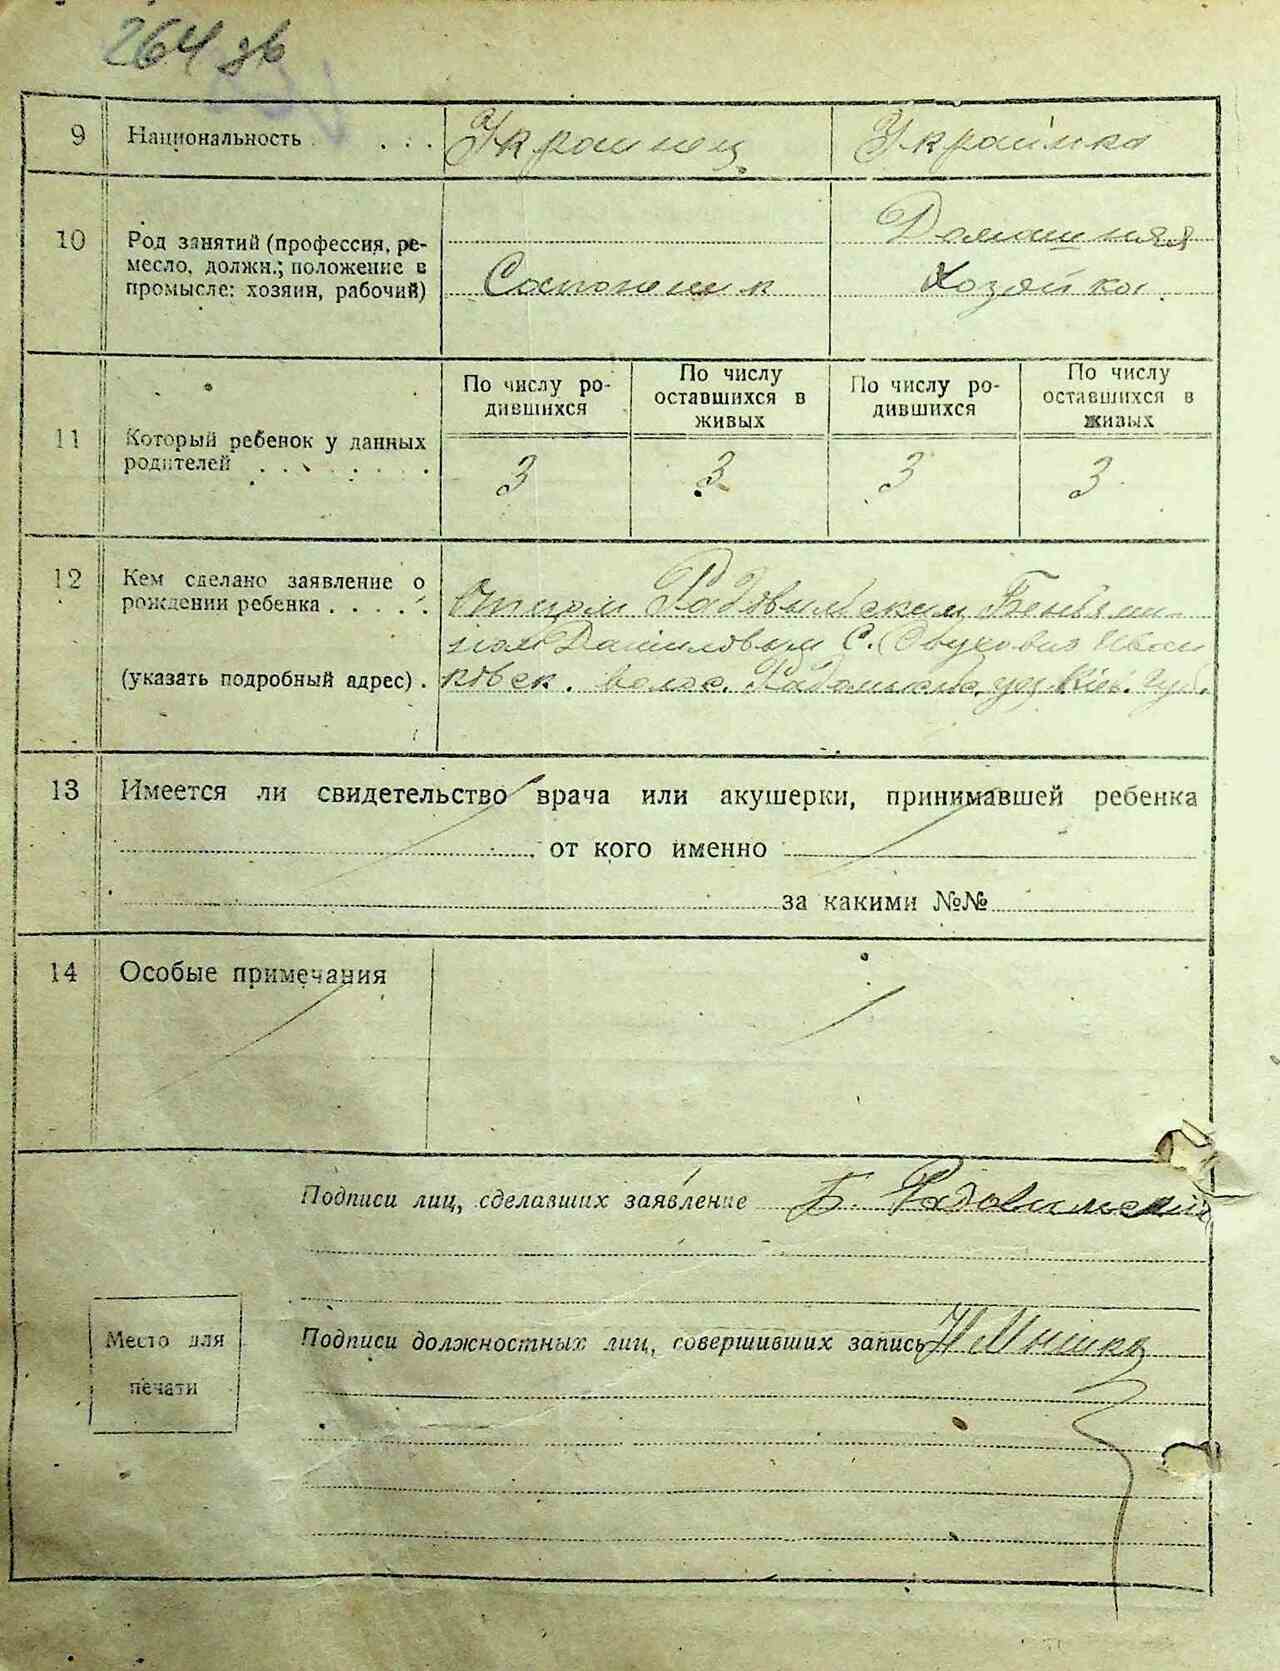 264 зв
9 Национальность . . . Украинец Украинка
10 Род занятий (профессия, ре-
месло, должн.; положение в
промысле: хозяин, рабочий)
Сапожник
Домашняя
хозяйка
11 Который ребенок у данных
родителей . . . . . .
По числу ро-
дившихся
По числу
оставшихся в
живых
По числу ро-
дившихся
По числу
оставшихся в
живых
3 3 3 3
12 Кем сделано заявление о
рождении ребенка . . . . .
(указать подробный адрес) .
Отцом Радовымским Беньями-
ном Даниловым С. Обуховиз Иван
ковск. волос. Радомысльск. уез. Киев. губ.
13 Имеется ли свидетельство врача или акушерки, принимавшей ребенка
от кого именно
за какими №№
14 Особые примечания
Подписи лиц, сделавших заявление Б. Радовимский
Подписи должностных лиц, совершивших запись
Место для
печати